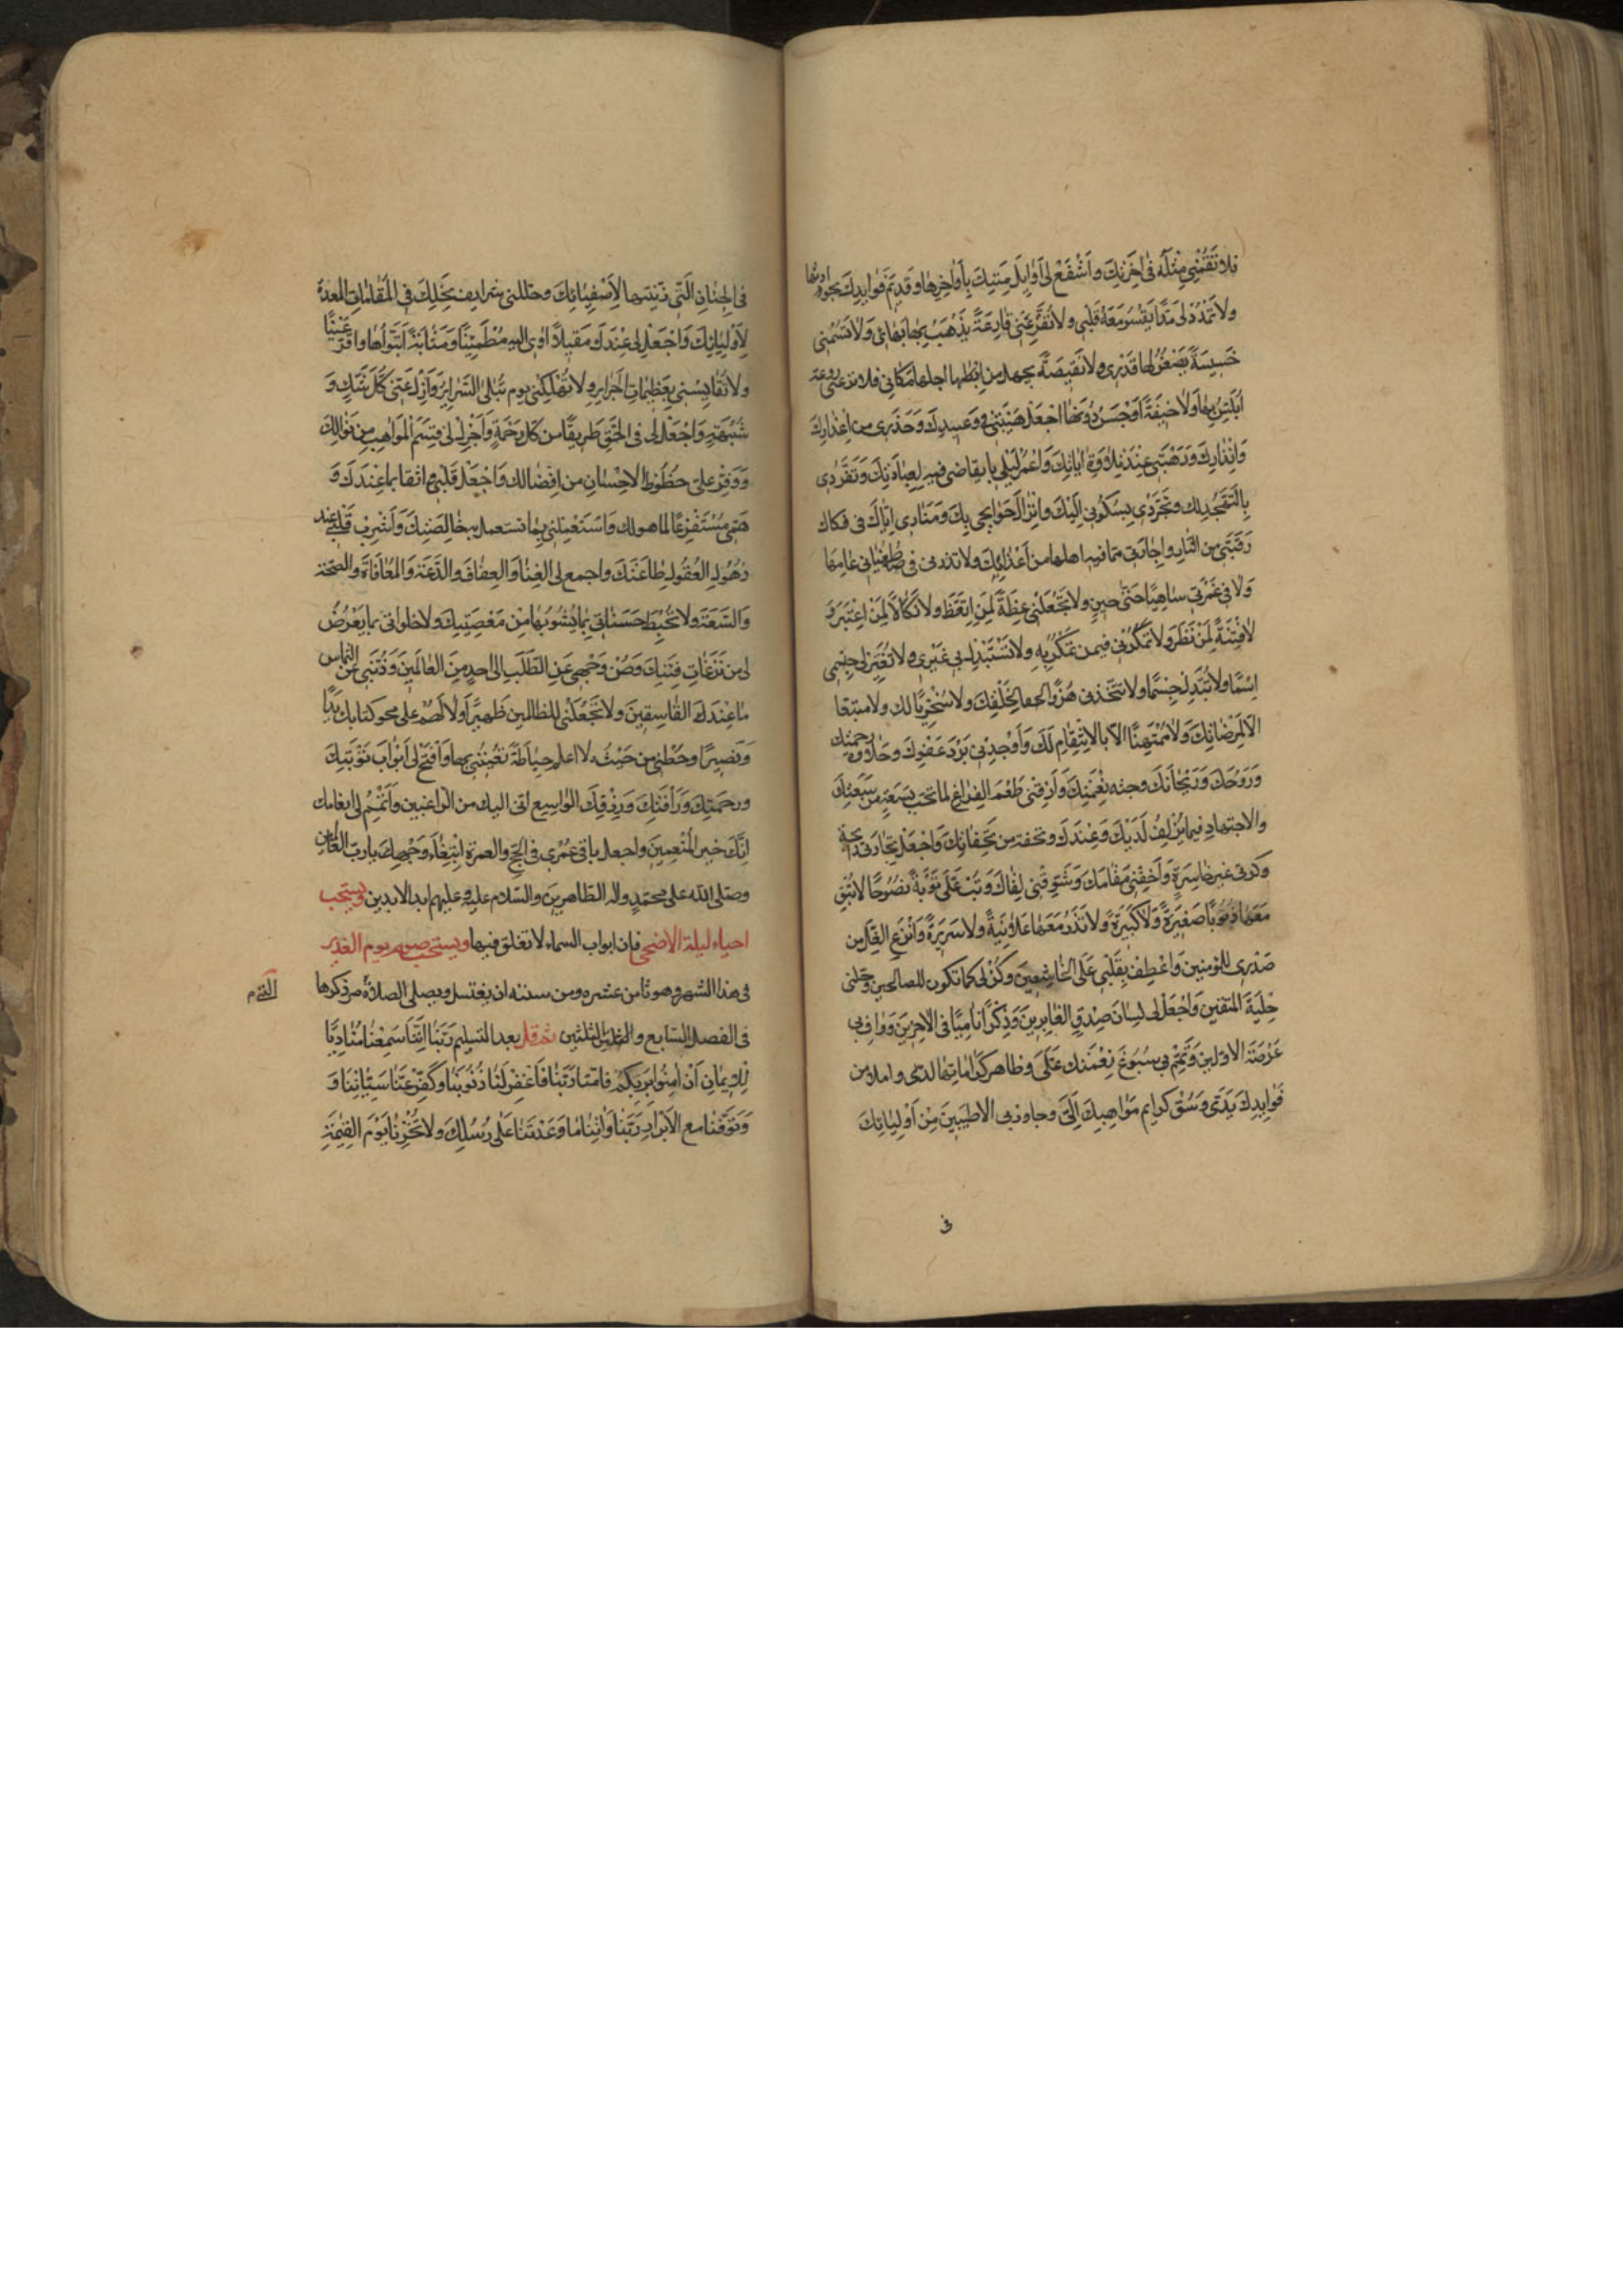 فلا تقمني مثله في اخرتك واشفع لي اوايل مننك باواخرها وقديم فوايدك بحوادثها
ولا تمدد لي مدا يقسو معه قلبي ولا تقرعني قارعة يذهب بها بهائي ولا تسمني
خسيسة يصغر لها قدري ولا نقيصة يجهل من اجلها مكاني ولا ترعني روعة
ابلس بها ولا خيفة اوجس دونها اجعل هيبتي في وعيدك وحذري من اعذارك
وانذارك ورهبتي عند تلاوة اياتك واعمر ليلي بايقاضي فيه لعبادتك وتفردي
بالتهجد لك وتجردي بسكوني اليك وانزال حوايجي بك ومنادي اياك في فكاك
رقبتي من النار واجارتي مما فيه اهلها من عذابك ولا تذرني في طغياني عامها
ولا في غمرتي ساهيا حتى حين ولا تجعلني عظة لمن اتعظ ولا نكالا لمن اعتبر و
لا فتنة لمن نظر ولا تمكر بي فيمن تمكر به ولا تستبدل بي غيري ولا تغير لي
اسما ولا تبدل لي جسما ولا تتخذني هزوا لخلقك ولا سخريا لك ولا متبعا
الا لمرضاتك ولا ممتهنا الا بالانتقام لك واوجدني برد عفوك وحلاوة رحمتك
وروحك وريحانك وجنة نعيمك واذقني طعم الفراغ لما تحب بسعة من سعتك
والاجتهاد فيما يزلف لديك وعندك وتحفة من تحفاتك واجعل تجارتي رابحة
وكرتي غير خاسرة واخفني مقامك وشوقني لقاك وتب علي توبة نصوحا لا تبق
معها ذنوبا صغيرة ولا كبيرة ولا تذر معها علانية ولا سريرة وانزع الغل من
صدري للمؤمنين واعطف بقلبي على الخاشعين وكن لي كما تكون للصالحين وحلني
حلية المتقين واجعل لي لسان صدق في الغابرين وذكرا ناميا في الاخرين وواف بي
عرصة الاولين وتمم بي سبوغ نعمتك علي وظاهر كراماتها لدي واملا من
فوايدك يدي وسق كرايم مواهبك الي وجاور بي الاطيبين من اوليائك
في
في الجنان التي زينتها لاصفيائك وجللني شرايف نحلك في المقامات المعدة
لاوليائك واجعل لي عندك مقيلا اوي اليه مطمئنا ومثابة اتبوأها واقر عينا
ولا تقايسني بعظيمات الجراير ولا تهلكني يوم تبلى السراير وازل عني كل شك و
شبهة واجعل لي في الحق طريقا من كل رحمة واجزل لي قسم المواهب من نوالك
ووفر علي حظوظ الاحسان من افضالك واجعل قلبي واثقا بما عندك و
همي مستفرغا لما هو لك واستعملني بما تستعمل به خالصتك واشرب قلبي عند
ذهول العقول طاعتك واجمع لي الغنا والعفاف والدعة والمعافاة والصحة
والسعة ولا تحبط حسناتي بما يشوبها من معصيتك ولا خلواتي بما يعرض
لي من نزغات فتنك وصن وجهي عن الطلب الى احد من العالمين وذبني عن التماس
ما عند الفاسقين ولا تجعلني للظالمين ظهيرا ولا لهم على محو كتابك يدا
ونصيرا وحطني من حيث لا اعلم حياطة تقيني بها وافتح لي ابواب توبتك
ورحمتك ورافتك ورزقك الواسع اني اليك من الراغبين واتمم لي انعامك
انك خير المنعمين واجعل باقي عمري في الحج والعمرة ابتغاء وجهك يا رب العالمين
وصلى الله على محمد واله الطاهرين والسلام عليه وعليهم ابد الابدين ويستحب
احياء ليلة الاضحى فان ابواب السماء لا تغلق فيها ويستحب صوم يوم الغدير
في هذا الشهر وهو ثامن عشره ومن سننه ان يغتسل ويصلي الصلاة مر ذكرها
في الفصل السابع والثلثين ثم قل بعد التسليم ربنا اننا سمعنا مناديا
للايمان ان امنوا بربكم فامنا ربنا فاغفر لنا ذنوبنا وكفر عنا سيئاتنا و
وتوفنا مع الابرار ربنا واتنا ما وعدتنا على رسلك ولا تخزنا يوم القيمة